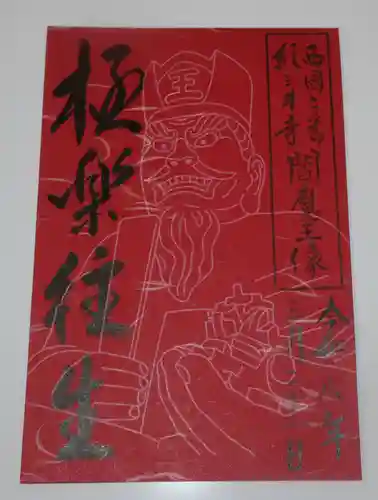 西国二番
紀三井寺
閻魔王像
令和 年
三月 日
極楽往生
王